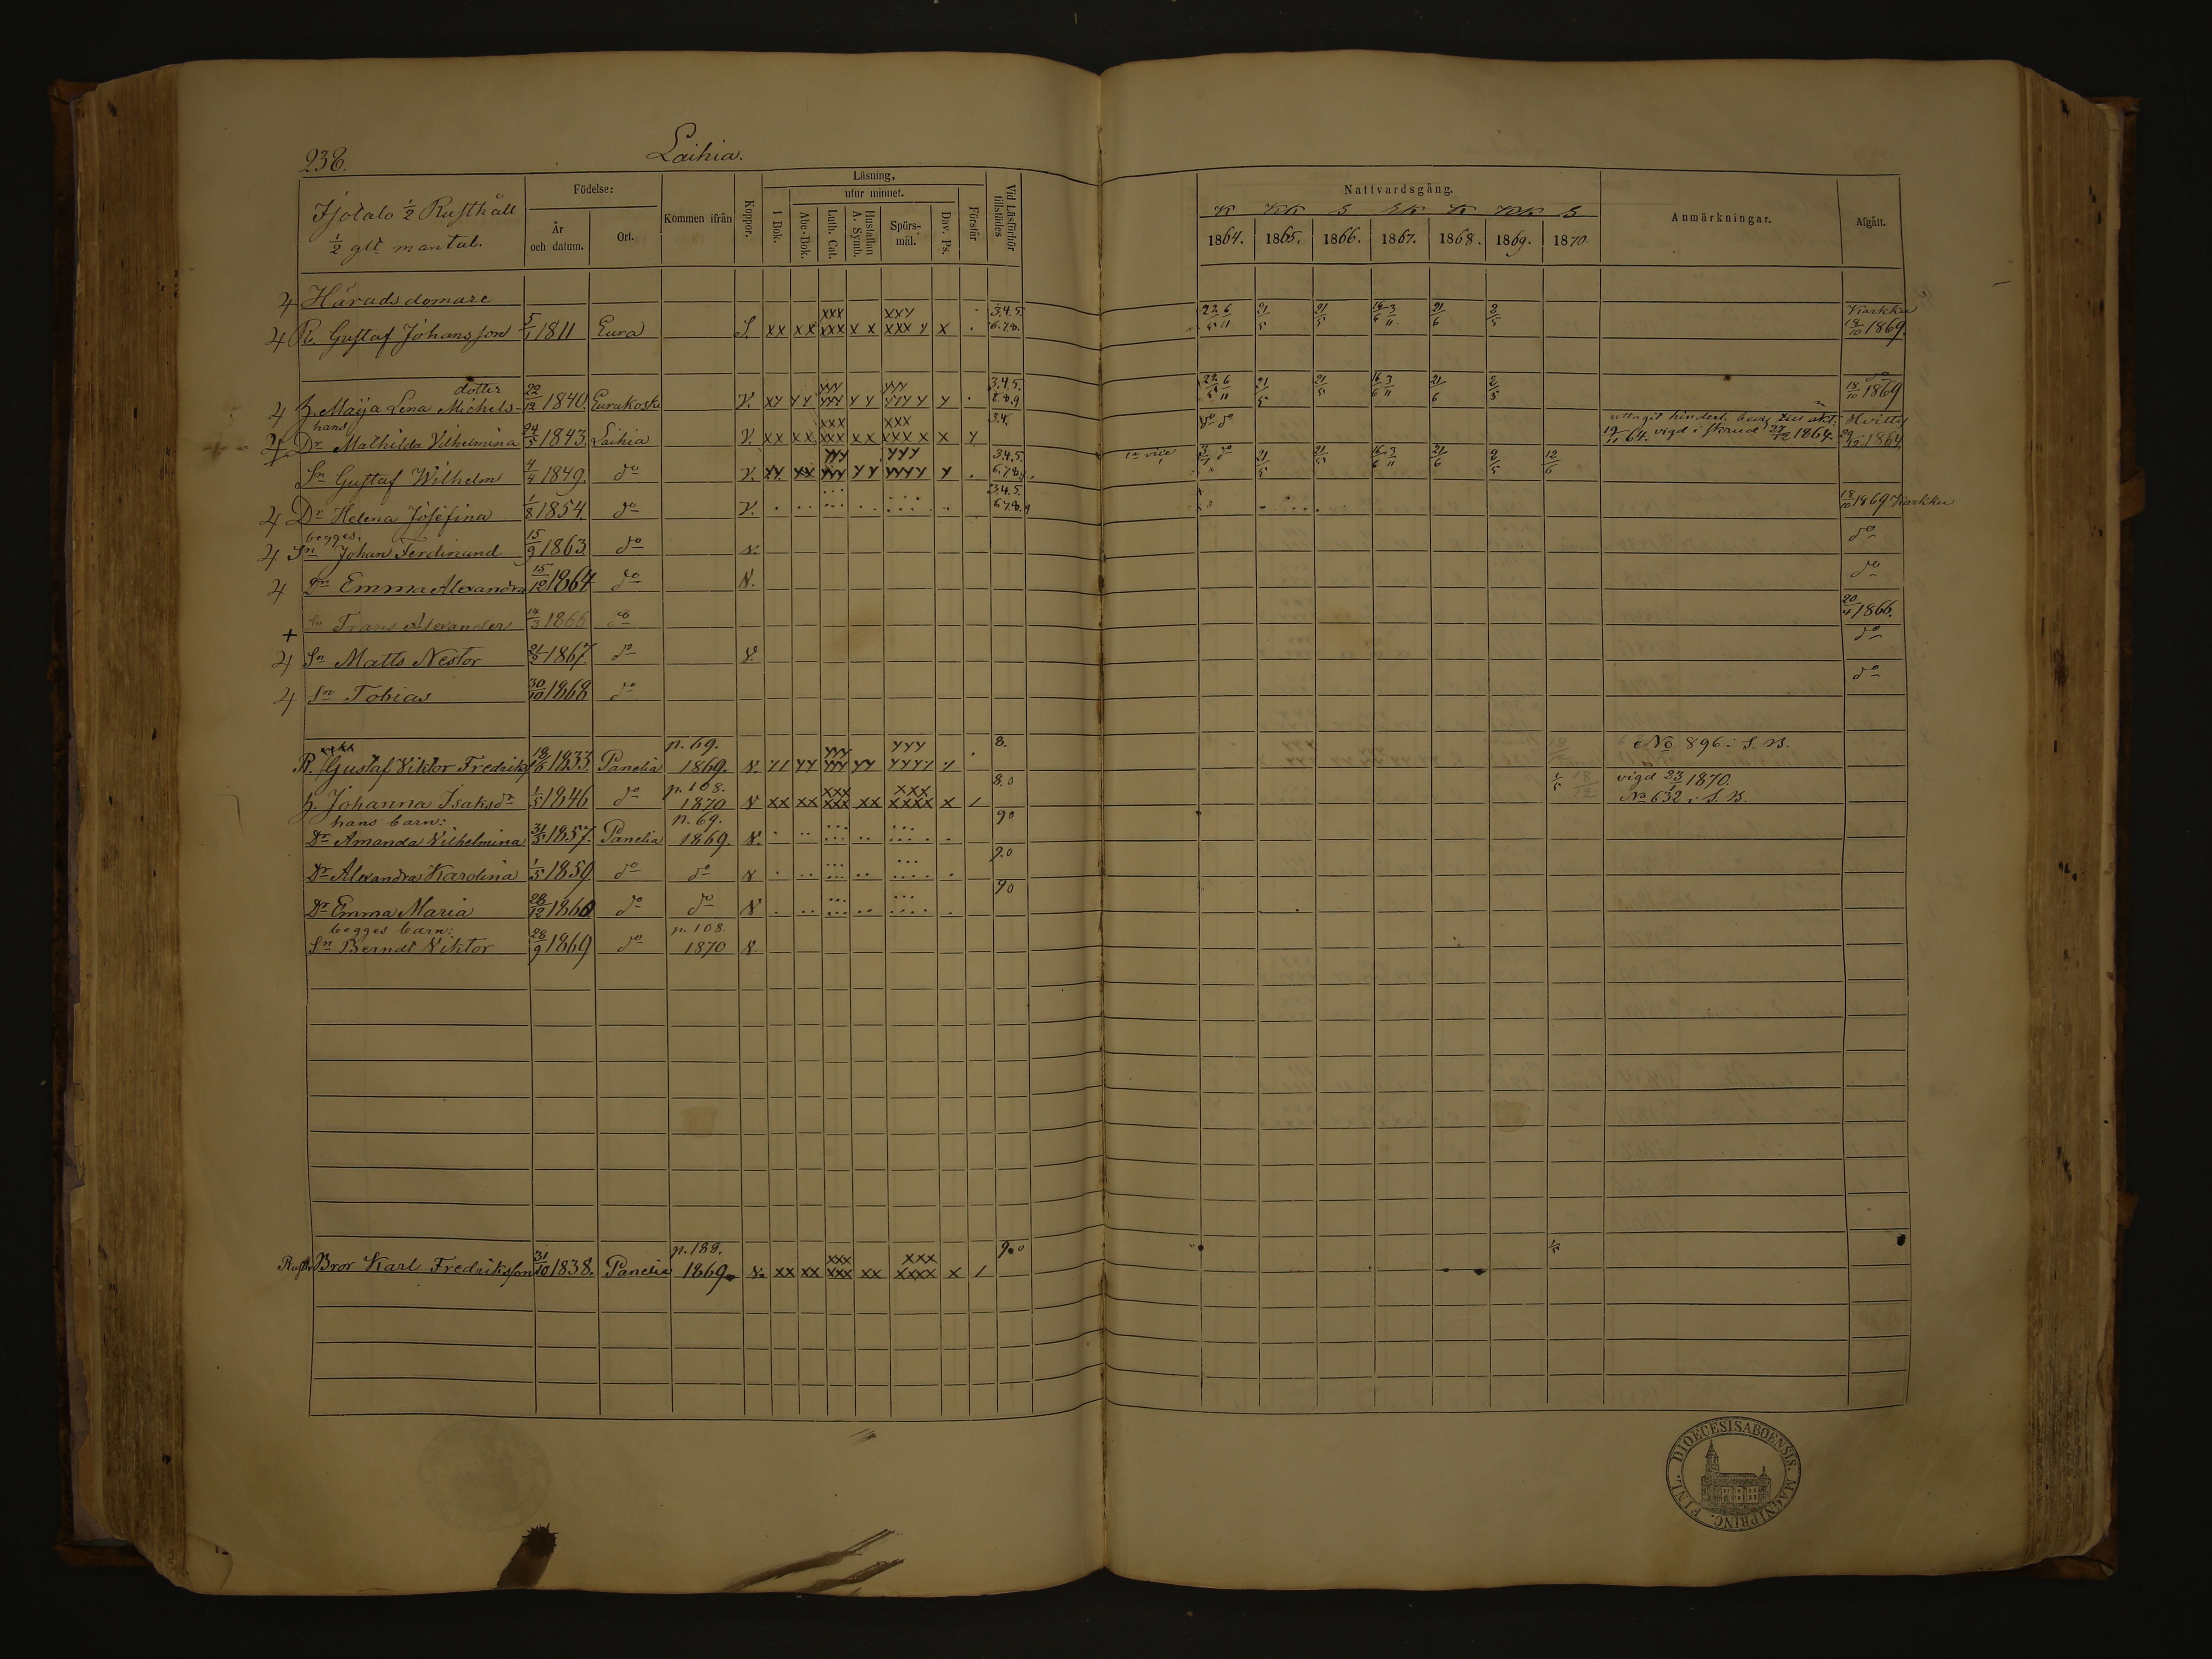 238.
Laihia.
Isotalo ½ Rusthåll
½ glt mantal.
Födelse:
År och datum.
Ort.
Kommen ifrån
Koppor.
Läsning,
utur minnet.
I Bok.
Abc-Bok.
Luth. Cat.
Hustaflan A. Symb.
Spörsmål.
Dav. Ps.
Förstår
Vid Läsförhör tillstädes
Nattvardsgång.
1864. 1865. 1866. 1867. 1868. 1869. 1870
Anmärkningar.
Afgått.
4 Häradsdomare
4 R. Gustaf Johansson 5/1 1811 Eura S. xx xx xxx xxx x x xxx xxx x x . 3.4.5. 6.7.8. 22/5 6/11 21/5 21/5 16/6 3/11 21/6 2/5 Karkku 18/10 1869.
4 h. Maija Lena Michelsdotter 22/12 1840. Eurakoski V. 3.4.5. 7.8.9 22/5 6/11 21/5 21/5 16/6 3/11 21/6 2/5 do 18/10 1869
hans
4 Dr Mathilda Vilhelmina 24/5 1843. Laihia V. xx xx xxx xxx x x xxx xxx x x 3.4. do do uttagit hinderl. bevis till äkt. 19/11 64. vigd i skrud 27/12 1864. Hvittis 29/12 1864
Sn Gustaf Wilhelm 4/4 1849. do V. 3.4.5. 6.7.8.9. 1a vice 3/7 do 21/5 21/5 16/6 3/11 21/6 2/5 12/6
4 Dr Helena Josefina 1/8 1854. do V. 3.4.5. 6.7.8.9 18/10 1869 Karkku
begges.
4 Sn Johan Ferdinand 15/9 1863. do v. do
4 Dr Emma Alexandra 15/12 1864 do V. do
+ Sn Frans Alexander 14/3 1866 do 20/4 1866.
4 Sn Matts Nestor 21/2 1867. do V. do
4 Sn Tobias 30/10 1868 do do
R. Gustaf Viktor Fredriks 18/6 1833. Panelia p. 69. 1869. V. 8. No 896 i S. B.
h. Johanna Isaksdr 1/5 1846 do p. 108. 1870 V xx xx xxx xxx xx xxx xxxx x / 8.0 1/5 18/12 vigd 23/1 1870. No 632 i S. B.
hans barn:
Dr Amanda Vilhelmina 31/5 1857. Panelia p. 69. 1869. V. 90
Dr Alexandra Karolina 1/5 1859 do do V 9.0
Dr Emma Maria 28/12 1860 do do V 90
begges barn:
Sn Berndt Viktor 28/9 1869 do p. 108. 1870 V.
Rusth Bror Karl Fredriksson 31/10 1838. Panelia p. 189. 1869. V. xx xx xxx xxx xx xxx xxxx x / 9.0 1/5
DIOECESIS ABOENSIS. MAGNI PRINC. FINL.